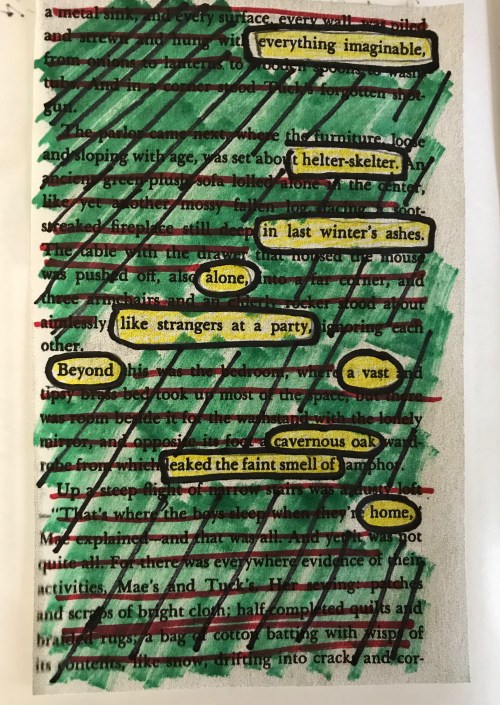 a metal sink, and every surface, every wall, was piled
and strewn and hung with everything imaginable,
from onions to lanterns to wooden spoons to wash
tubs. And in a corner stood Tuck's forgotten shot-
gun.
The parlor came next, where the furniture, loose
and sloping with age, was set about helter-skelter. An
ancient green plush sofa lolled alone in the center,
like yet another mossy fallen log, facing a soot-
streaked fireplace still deep in last winter's ashes.
The table with the drawer that housed the mouse
was pushed off, also alone, into a far corner, and
three armchairs and an elderly rocker stood about
aimlessly, like strangers at a party, ignoring each
other.
Beyond this was the bedroom, where a vast and
tipsy brass bed took up most of the space, but there
was room beside it for the washstand with the lonely
mirror, and opposite its foot a cavernous oak ward-
robe from which leaked the faint smell of camphor.
Up a steep flight of narrow stairs was a dusty loft.
"That's where the boys sleep when they're home,"
Mae explained—and that was all. And yet it was not
quite all. For there was everywhere evidence of their
activities, Mae's and Tuck's. Her sewing: patches
and scraps of bright cloth; half-completed quilts and
braided rugs; a bag of cotton batting with wisps of
its contents, like snow, drifting into cracks and cor-